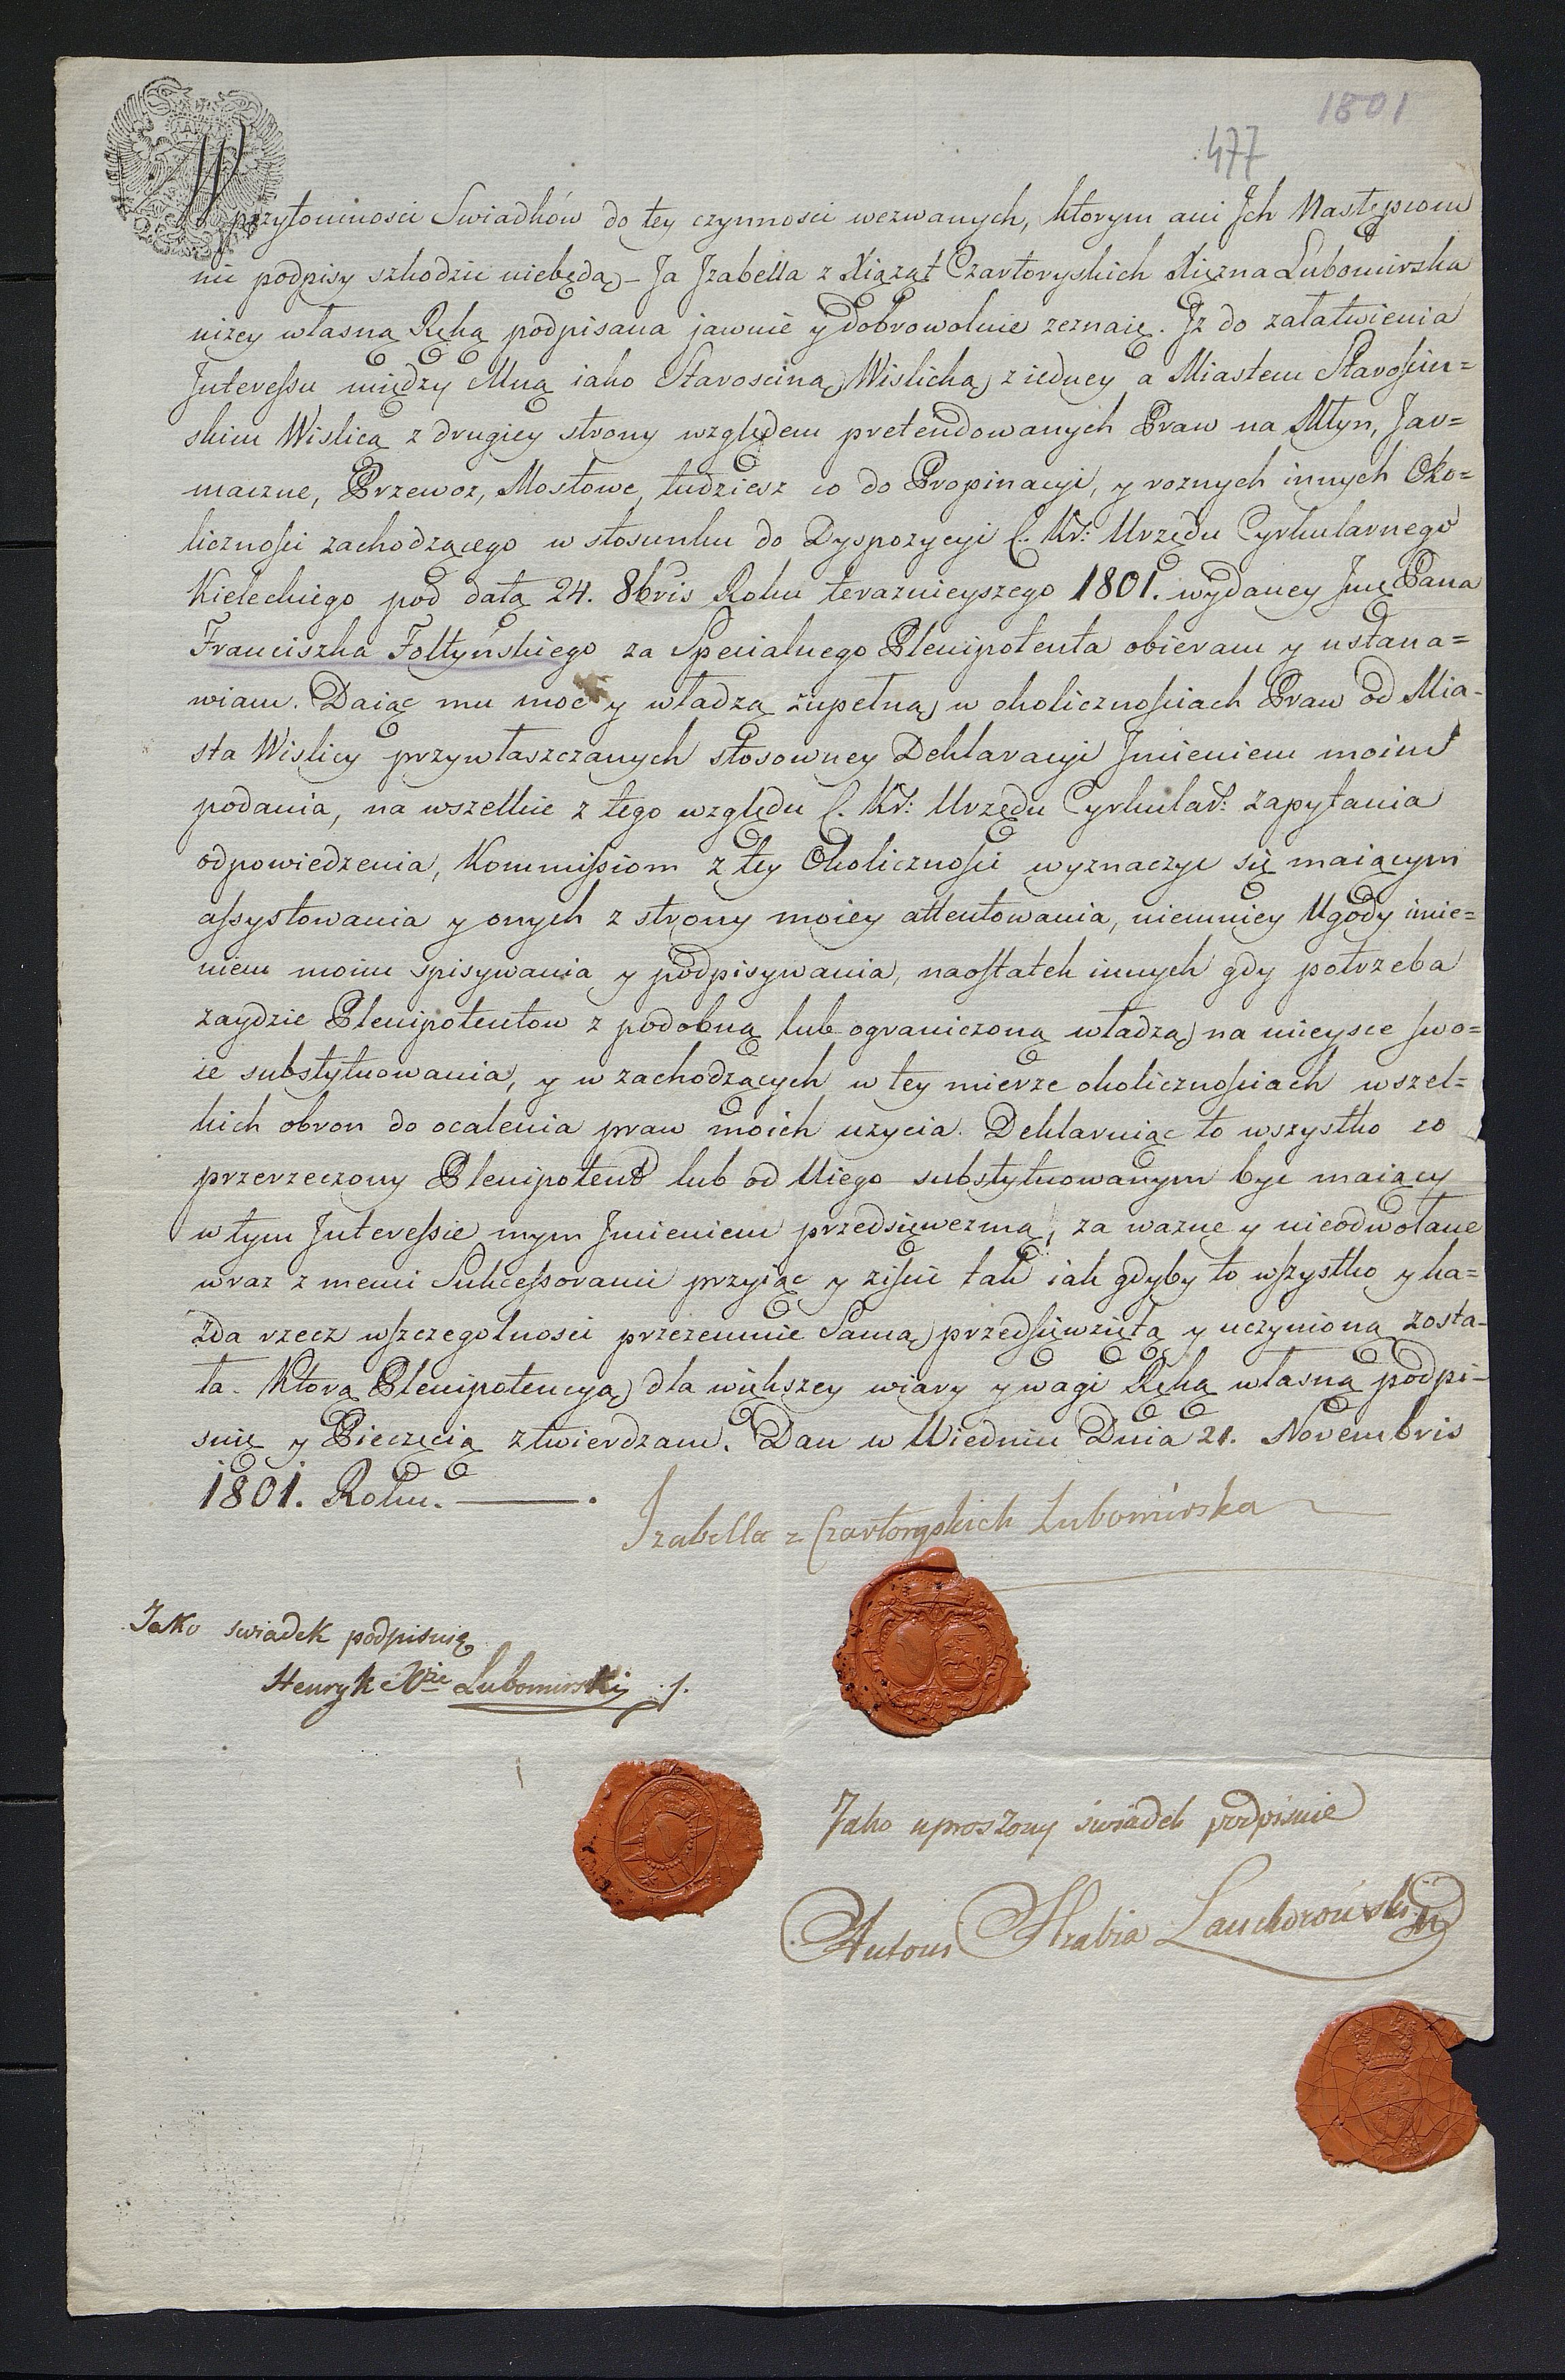 1801
477
W przytomnosci Swiadków do tey czynnosci wezwanych, ktorym ani Jch Następcom
nic podpisy szkodzić niebędą – Ja Jzabella z Xiąząt Czartoryskich Xięzna Lubomirska
nizey własną Ręką podpisana jawnie y dobrowolnie zeznaię. Jz do załatwienia
Interessu między Mną iako Starosciną Wislicką z iedney a Miastem Starościn=
skim Wislicą z drugiey strony względem pretendowanych Praw na Młyn, Jar=
maczne, Przewoz, Mostowe, tudziesz co do Propinacyi, y roznych innych Oko=
liczności zachodzącego w stosunku do Dyspozycyi C. Kr: Urzędu Cyrkularnego
Kieleckiego pod datą 24. 8bris Roku teraznieyszego 1801. wydaney Jmę Pana
Franciszka Foltyńskiego za Specialnego Plenipotenta obieram y ustana=
wiam. Daiąc mu moc y władzą zupełną w okolicznościach Praw od Mia-
sta Wislicy przywłaszczanych stosowney Deklaracyi Jmieniem moim
podania, na wszelkie z tego względu C. Kr: Urzędu Cyrkular: zapytania
odpowiedzenia, Kommissiom z tey Okoliczności wyznaczyc się maiącym
assystowania y onych z strony moiey attentowania, niemniey Ugody imie=
niem moim spisywania y podpisywania, naostatek innych gdy potrzeba
zaydzie Plenipotentow z podobną lub ograniczoną władzą na mieysce swo=
ie substytuowania, y w zachodzących w tey mierze okolicznościach wszel=
kich obron do ocalenia praw moich uzycia. Deklaruiąc to wszystko co
przerzeczony Plenipotent lub od Niego substytuowanym byc maiący
w tym Interessie mym Jmieniem przedsięwezmą, za wazne y nieodwołane
wraz z memi Sukcessorami przyiąc y ziścic tak iak gdyby to wszystko y ka=
zda rzecz wszczegolnosci przezemnie Samą przedsięwziętą y uczynioną zosta-
ła. Którą Plenipotencyą dla większey wiary y wagi Ręką własną podpi-
suię y Pieczęcią ztwierdzam. Dan w Wiedniu Dnia 21. Novembris
1801. Roku. ———.
Izabella z Czartoryskich Lubomirska
Jako swiadek podpisuię
Henryk Xże Lubomirski
Jako uproszony świadek podpisuie
Antoni Hrabia Lanckoroński